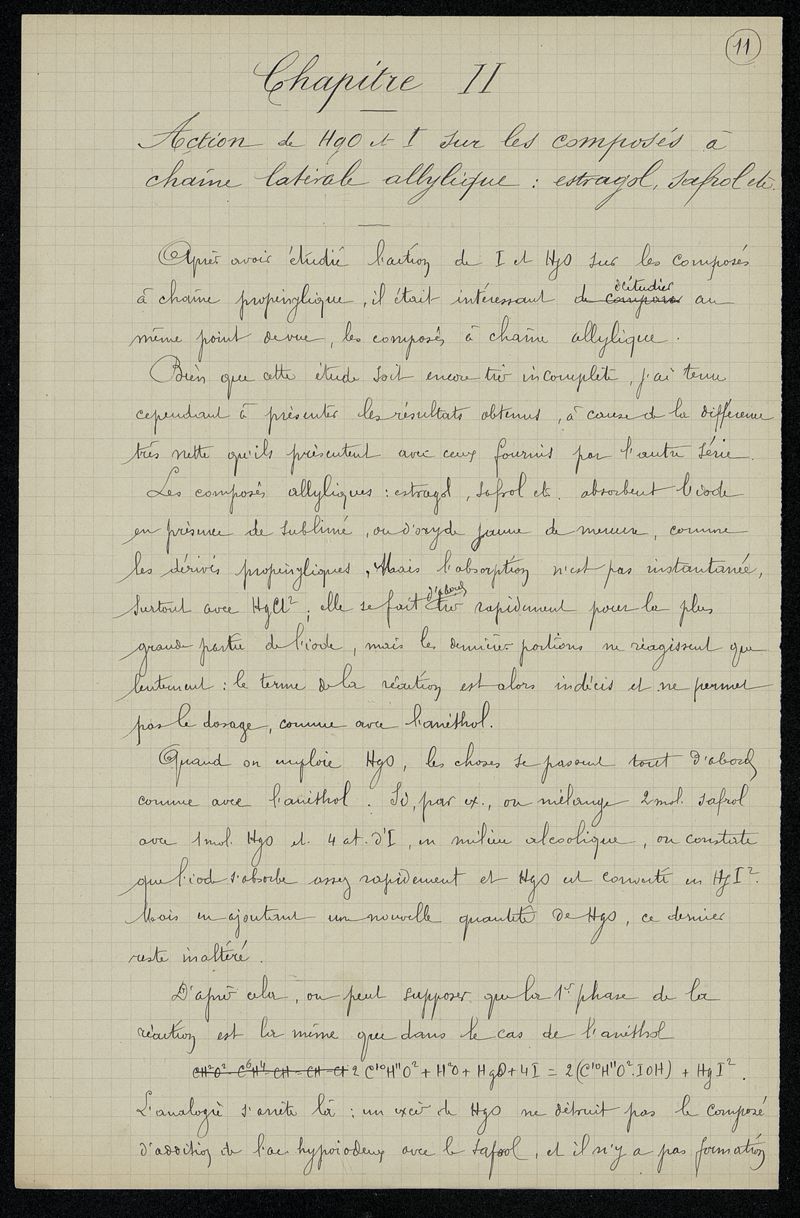 11
Chapitre II
Action de HgO et I sur les composés à
chaîne latérale allylique : estragol, safrol etc.
Après avoir étudié l'action de I et HgO sur les composés
à chaîne propénylique, il était intéressant de comparer d'étudier au
même point de vue, les composés à chaîne allylique.
Bien que cette étude soit encore très incomplète, j'ai tenu
cependant à présenter les résultats obtenus, à cause de la différence
très nette qu'ils présentent avec ceux fournis par l'autre série.
Les composés allyliques : estragol, safrol etc. absorbent l'iode
en présence de sublimé, ou d'oxyde jaune de mercure, comme
les dérivés propényliques, Mais l'absorption n'est pas instantanée,
surtout avec HgCl²; elle se fait d'abord très rapidement pour la plus
grande partie de l'iode, mais les dernières portions ne réagissent que
lentement : le terme de la réaction est alors indécis et ne permet
pas le dosage, comme avec l'anéthol.
Quand on emploie HgO, les choses se passent tout d'abord
comme avec l'anéthol. Si, par ex., on mélange 2 mol. safrol
avec 1 mol. HgO et 4 at. d'I, en milieu alcoolique, on constate
que l'iode s'absorbe assez rapidement et HgO est converti en HgI².
Mais en ajoutant une nouvelle quantité de HgO, ce dernier
reste inaltéré.
D'après cela, on peut supposer que la 1re phase de la
réaction est la même que dans le cas de l'anéthol
CH²O² - C⁶H⁴ - CH - CH - CH 2 C¹⁰H¹¹O² + H²O + HgO + 4 I = 2 (C¹⁰H¹¹O².IOH) + HgI².
L'analogie s'arrête là : un excès de HgO ne détruit pas le composé
d'addition de l'ac. hypoiodeux avec le safrol, et il n'y a pas formation